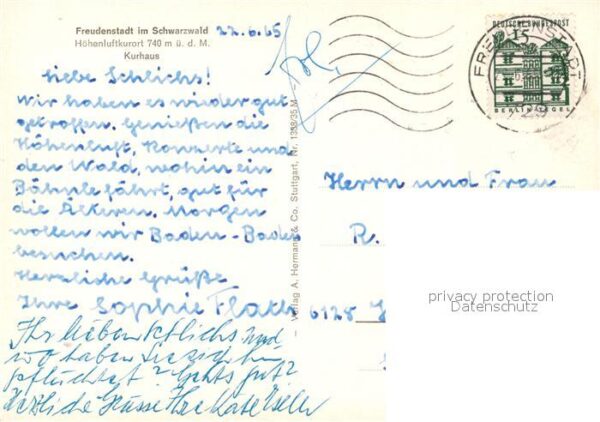 Freudenstadt im Schwarzwald
Höhenluftkurort 740 m ü. d. M.
Kurhaus
22.6.65
Liebe Schlichs!
Wir haben es wieder gut
getroffen. Genießen die
Höhenluft, Konzerte und
den Wald, wohin ein
Bähnle fährt, gut für
die Älteren. Morgen
wollen wir Baden-Baden
besuchen.
Herzliche Grüße
Ihre Sophie
Ihr lieben und
wo haben Sie
gut?
Herzliche Grüsse Ihre
Verlag A. Hermann & Co. Stuttgart, Nr. 1358/35 M
DEUTSCHE BUNDESPOST
15
BERLIN-TEGEL
FREUDENSTADT
Herrn und Frau
R.
6128
privacy protection
Datenschutz